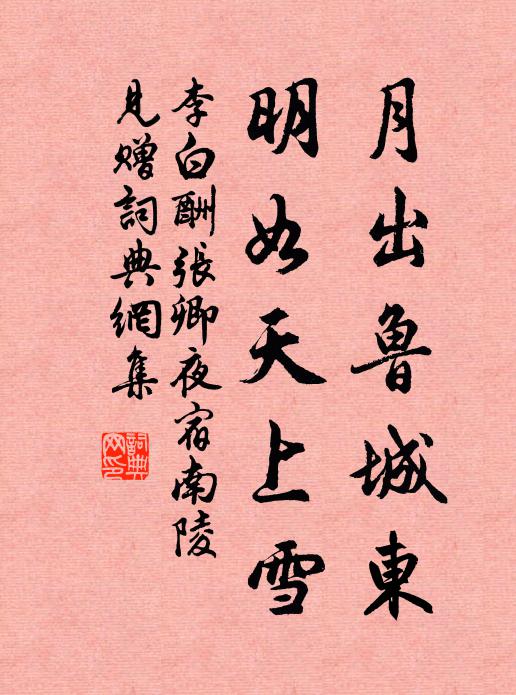 月出魯城東
明如天上雪
李白酬張卿夜宿南陵
見贈詞典網集
詞典
网印